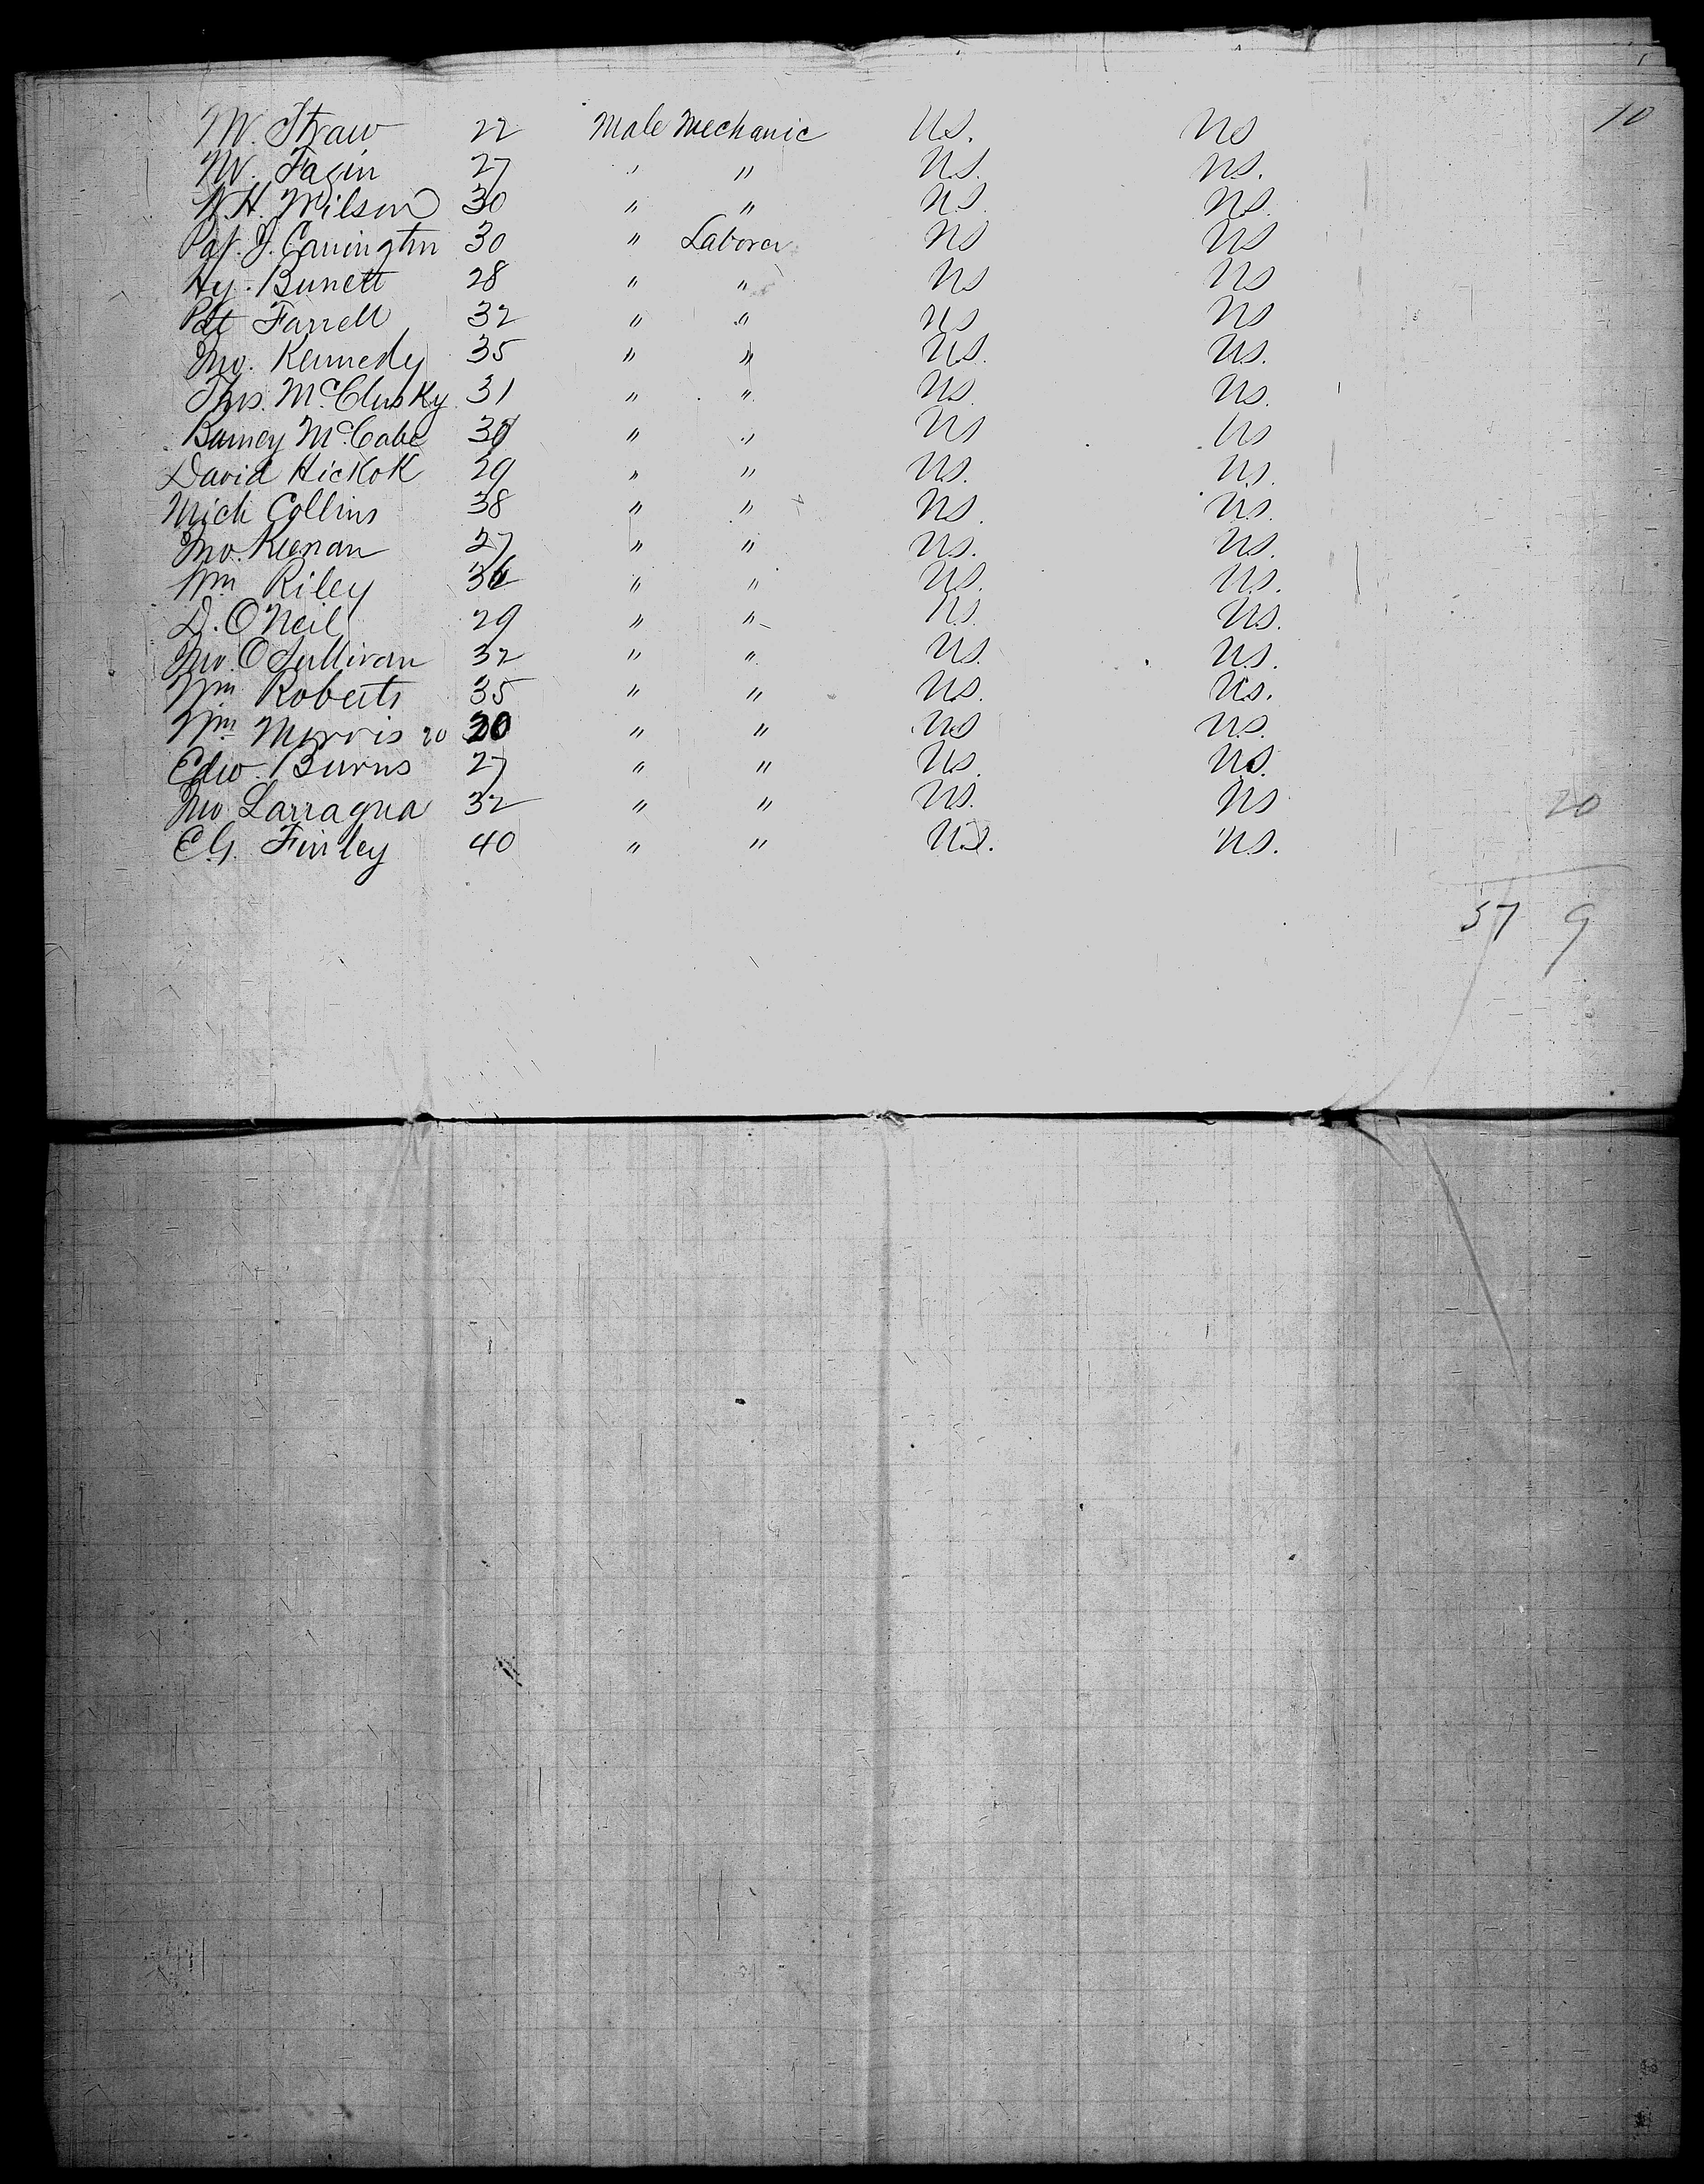 10
M. Straw 22 Male Mechanic U.S. US
M. Fagin 27 " " U.S. U.S.
W.H. Wilson 30 " " U.S. U.S.
Pat. J. Carrington 30 " Laborer US US
Hy. Burnett 28 " " US US
Pat Farrell 32 " " US US
Jno. Kennedy 35 " " U.S. U.S.
Thos. McClusky 31 " " US. US.
Barney McCabe " " US US
David Hickok 29 " " US. US.
Mich Collins 38 " " US. U.S.
Jno. Keenan 27 " " U.S. U.S.
Wm Riley 36 " " U.S. U.S.
D. O'Neil 29 " " U.S. U.S.
Jno. O Sullivan 32 " " U.S. U.S.
Wm Roberts 35 " " U.S. U.S.
Wm Morris 20 20 " " US U.S.
Edw. Burns 27 " " US. U.S.
Jno Larragua 32 " " U.S. US
E.G. Finley 40 " " U.S. U.S.
20
57 9